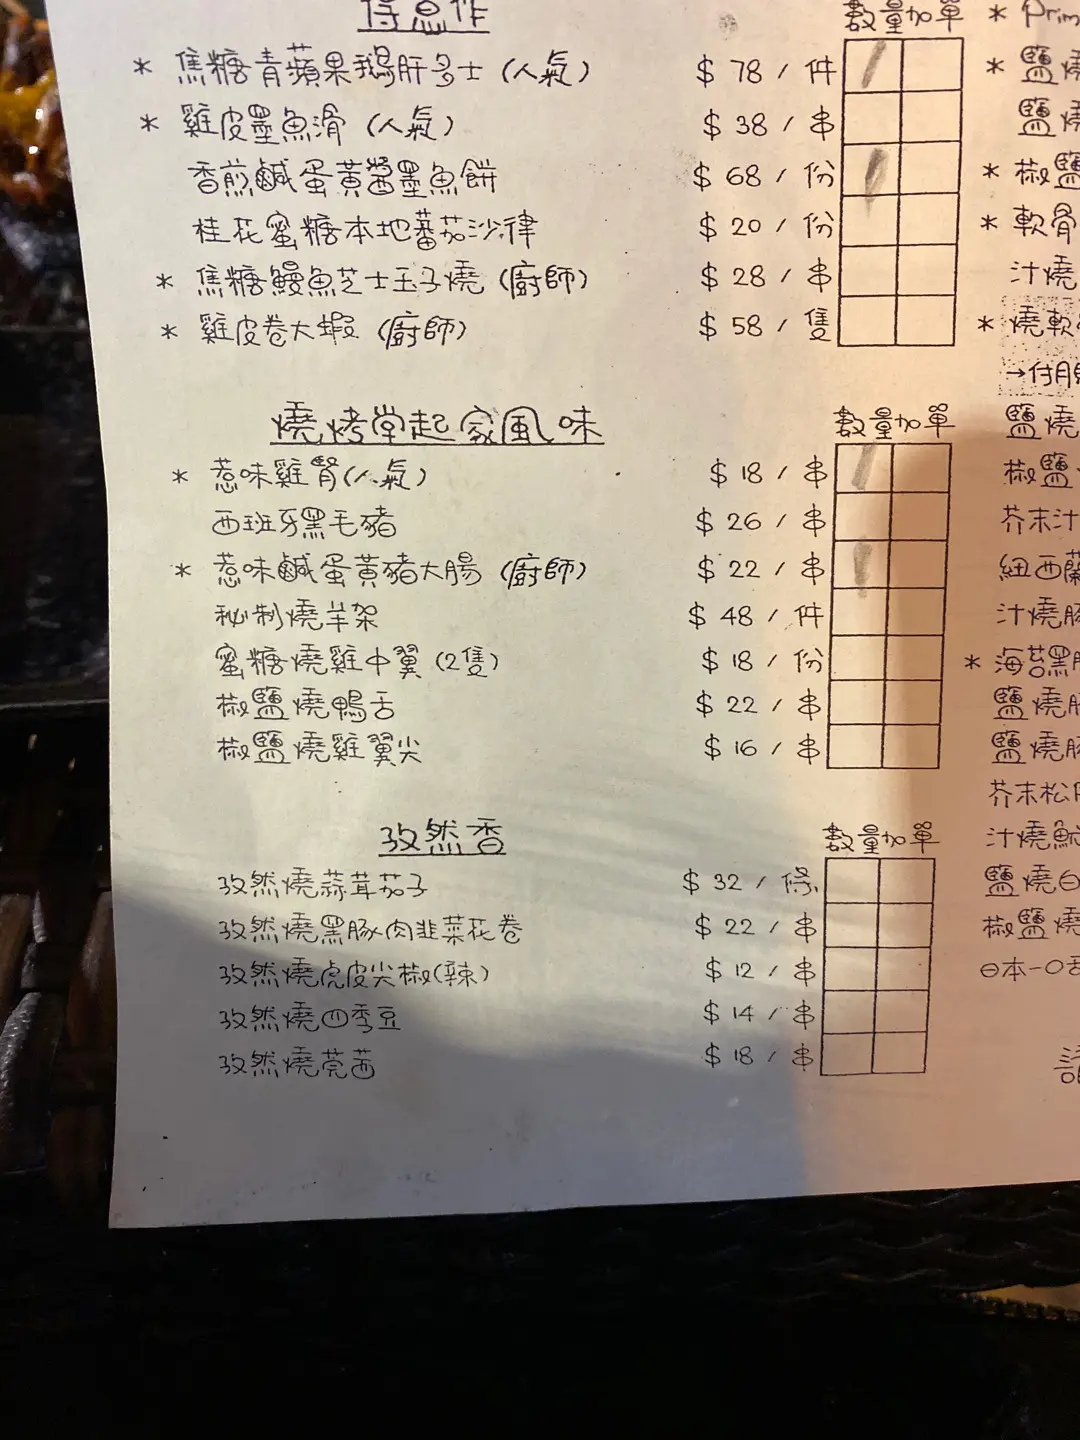 數量加單
* 焦糖青蘋果鵝肝多士 (人氣) $ 78 / 件
* 雞皮墨魚滑 (人氣) $ 38 / 串
香煎鹹蛋黃醬墨魚餅 $ 68 / 份
桂花蜜糖本地蕃茄沙律 $ 20 / 份
* 焦糖鰻魚芝士玉子燒 (廚師) $ 28 / 串
* 雞皮卷大蝦 (廚師) $ 58 / 隻
燒烤堂起家風味 數量加單
* 惹味雞腎 (人氣) $ 18 / 串
西班牙黑毛豬 $ 26 / 串
* 惹味鹹蛋黃豬大腸 (廚師) $ 22 / 串
秘制燒羊架 $ 48 / 件
蜜糖燒雞中翼 (2隻) $ 18 / 份
椒鹽燒鴨舌 $ 22 / 串
椒鹽燒雞翼尖 $ 16 / 串
孜然香 數量加單
孜然燒蒜茸茄子 $ 32 / 條
孜然燒黑豚肉韭菜花卷 $ 22 / 串
孜然燒虎皮尖椒(辣) $ 12 / 串
孜然燒四季豆 $ 14 / 串
孜然燒莞茜 $ 18 / 串
* Prim
* 鹽燒
鹽燒
* 椒鹽
* 軟骨
汁燒
* 燒軟
→付
鹽燒
椒鹽
芥末汁
紐西蘭
汁燒
* 海苔黑
鹽燒
鹽燒
芥末松
汁燒
鹽燒白
椒鹽燒
日本一口